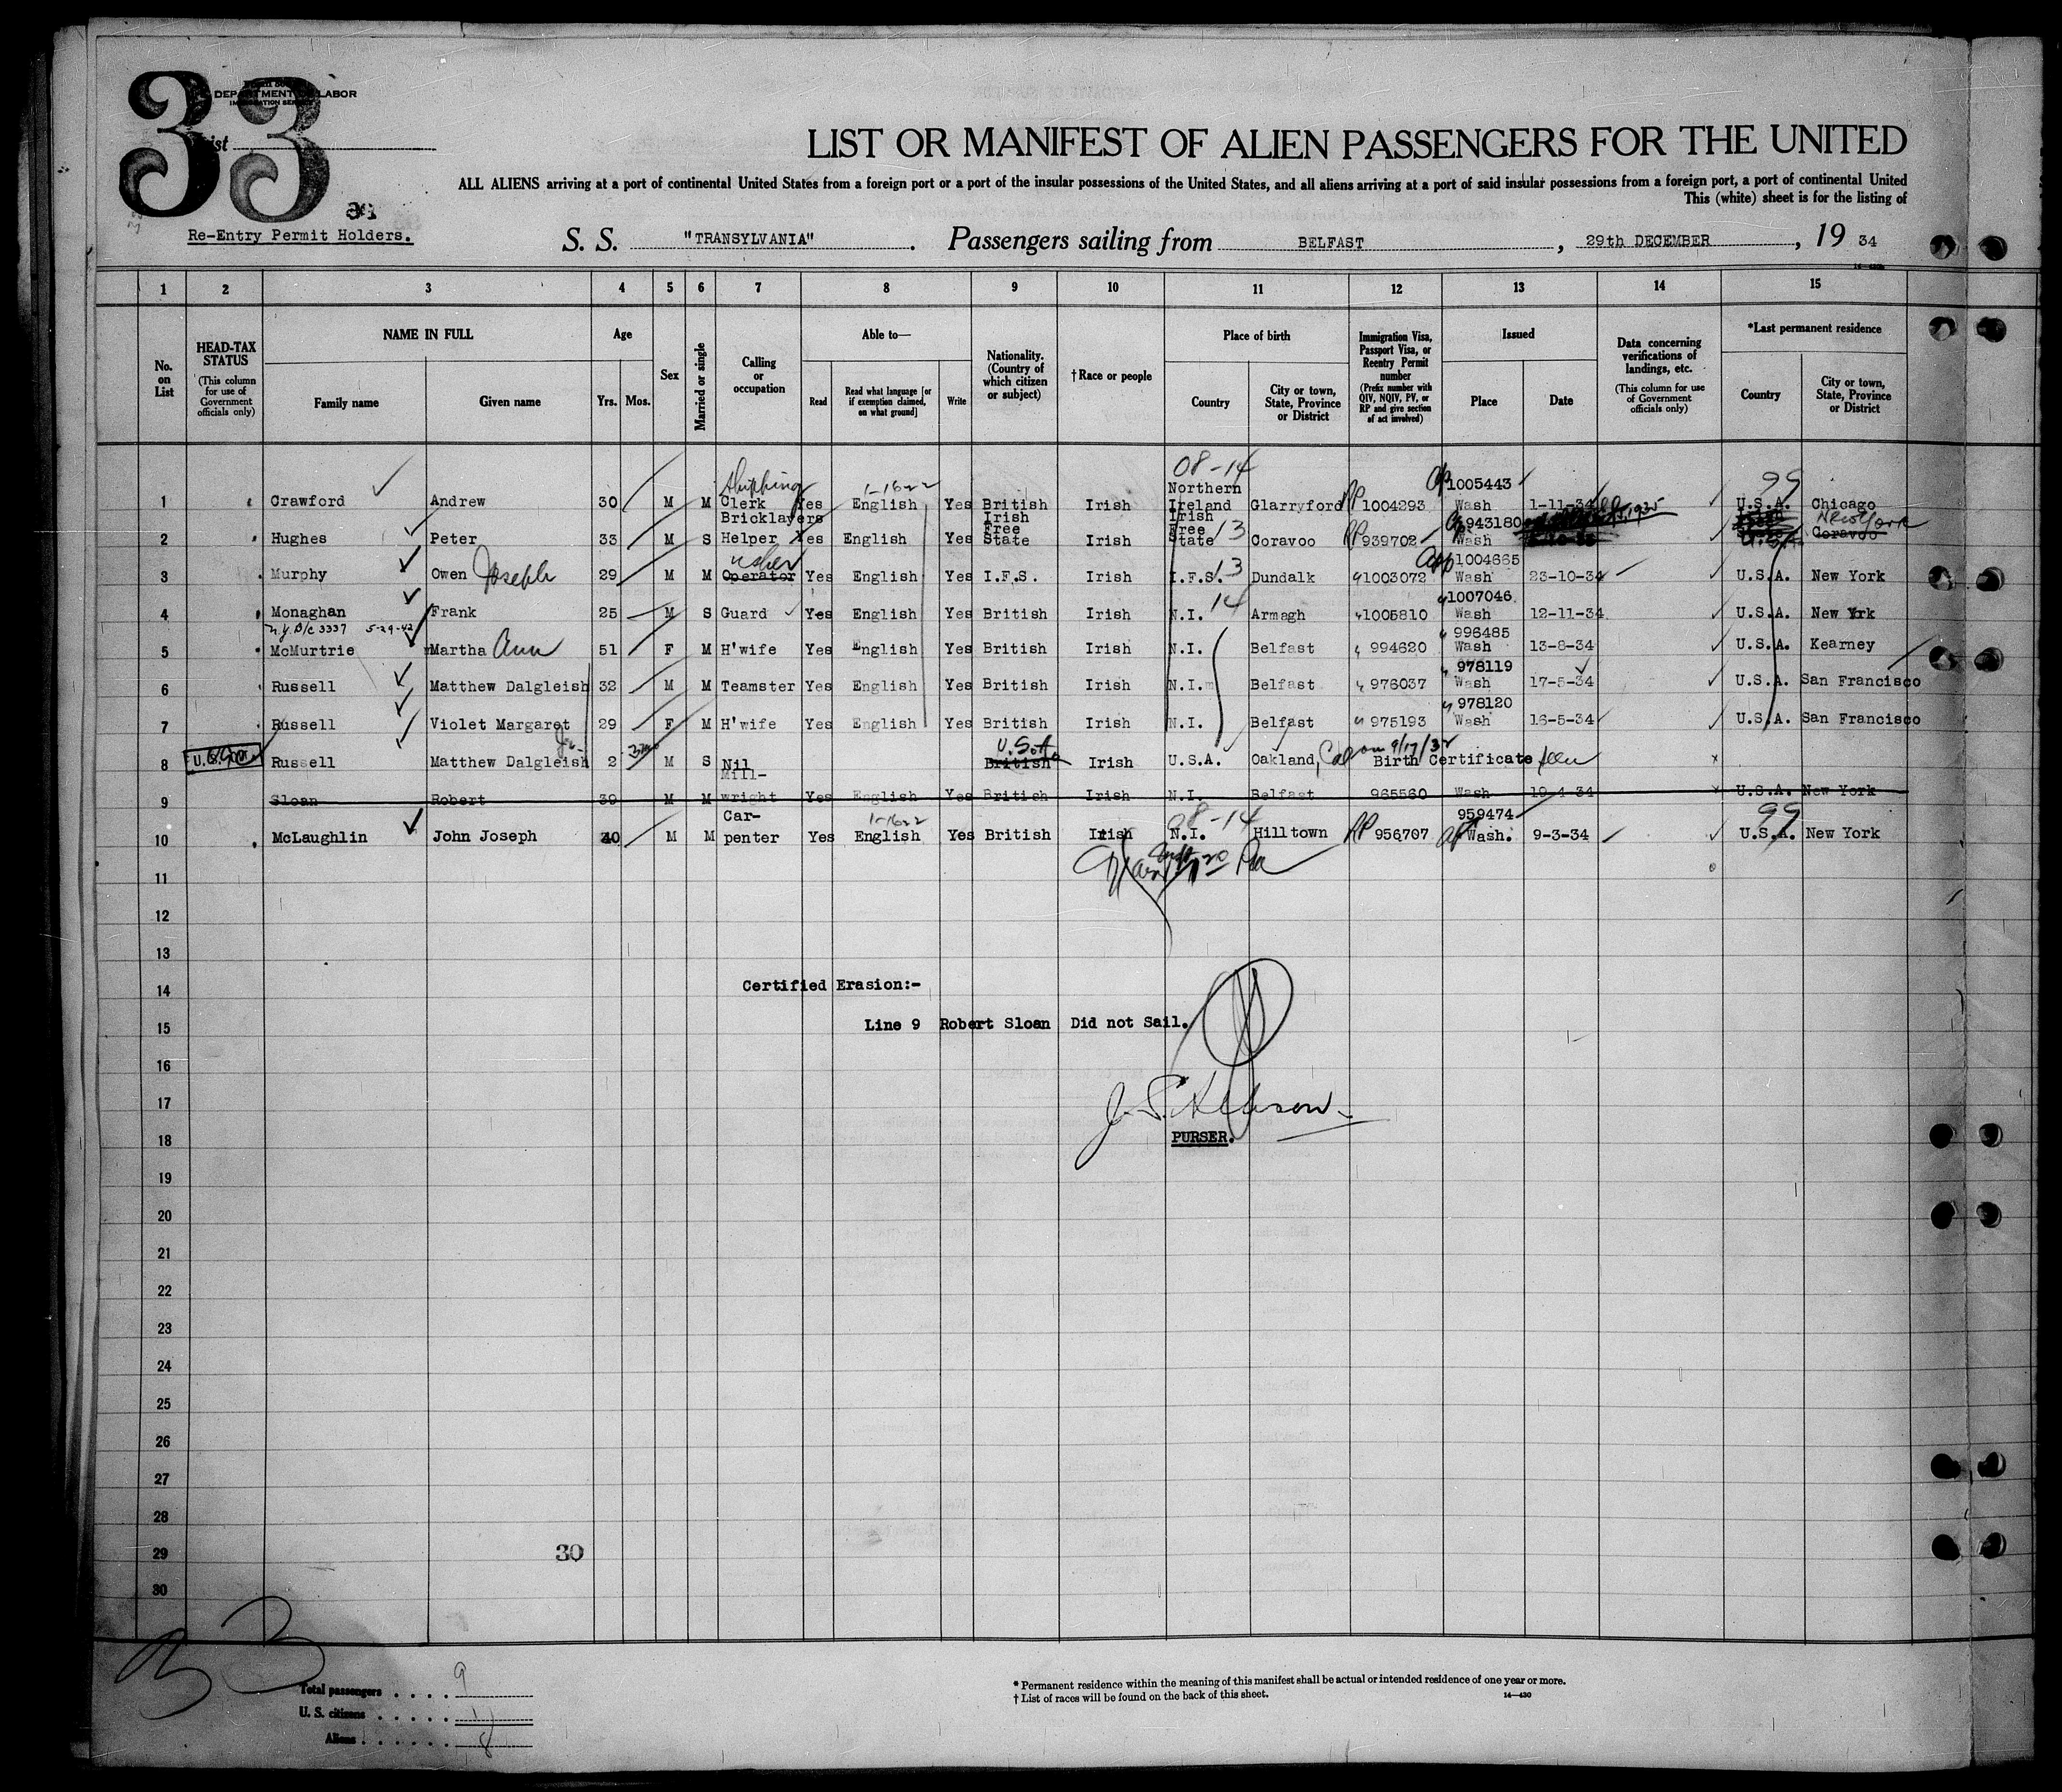 33
DEPARTMENT OF LABOR
IMMIGRATION SERVICE
List
LIST OR MANIFEST OF ALIEN PASSENGERS FOR THE UNITED
ALL ALIENS arriving at a port of continental United States from a foreign port or a port of the insular possessions of the United States, and all aliens arriving at a port of said insular possessions from a foreign port, a port of continental United
This (white) sheet is for the listing of
Re-Entry Permit Holders.
S. S. "TRANSYLVANIA". Passengers sailing from BELFAST, 29th DECEMBER, 19 34
1 2 3 4 5 6 7 8 9 10 11 12 13 14 15
No. on List
HEAD-TAX STATUS (This column for use of Government officials only)
NAME IN FULL
Family name
Given name
Age
Yrs. Mos.
Sex
Married or single
Calling or occupation
Able to—
Read
Read what language [or if exemption claimed, on what ground]
Write
Nationality. (Country of which citizen or subject)
†Race or people
Place of birth
Country
City or town, State, Province or District
Immigration Visa, Passport Visa, or Reentry Permit number (Prefix number with QIV, NQIV, PV, or RP and give section of act involved)
Issued
Place
Date
Data concerning verifications of landings, etc. (This column for use of Government officials only)
*Last permanent residence
Country
City or town, State, Province or District
08-14
1 Crawford Andrew 30 M M Shipping Clerk Yes English 1-1622 Yes British Irish Northern Ireland Glarryford RP 1004293 1005443 Wash 1-11-34 99 U.S.A. Chicago
2 Hughes Peter 33 M S Bricklayers Helper Yes English Yes Irish Free State Irish Irish Free State 13 Coravoo RP 939702 943180 Wash 1935 U.S.A. Coravoo New York
3 Murphy Owen Joseph 29 M M Operator usher Yes English Yes I.F.S. Irish I.F.S. 13 Dundalk 1003072 1004665 Wash 23-10-34 U.S.A. New York
4 Monaghan Frank 25 M S Guard Yes English Yes British Irish N.I. 14 Armagh 1005810 1007046 Wash 12-11-34 U.S.A. New York
N.Y. B/c 3337 5-29-42
5 McMurtrie Martha Ann 51 F M H'wife Yes English Yes British Irish N.I. Belfast 994620 996485 Wash 13-8-34 U.S.A. Kearney
6 Russell Matthew Dalgleish 32 M M Teamster Yes English Yes British Irish N.I. Belfast 976037 978119 Wash 17-5-34 U.S.A. San Francisco
7 Russell Violet Margaret 29 F M H'wife Yes English Yes British Irish N.I. Belfast 975193 978120 Wash 16-5-34 U.S.A. San Francisco
8 Russell Matthew Dalgleish Jr. 2 M S Nil British U.S.A. Irish U.S.A. Oakland, Cal on 9/17/32 Birth Certificate seen
9 Sloan Robert 39 M M Mill-wright Yes English Yes British Irish N.I. Belfast 965560 Wash 19-4-34 U.S.A. New York
10 McLaughlin John Joseph 40 M M Car-penter Yes English 1-1622 Yes British Irish 08-14 N.I. Hilltown RP 956707 959474 Wash. 9-3-34 99 U.S.A. New York
11
12
13
14 Certified Erasion:-
15 Line 9 Robert Sloan Did not Sail.
16
17
18 PURSER.
19
20
21
22
23
24
25
26
27
28
29 30
30
33
Total passengers 9
U. S. citizens 1
Aliens 8
* Permanent residence within the meaning of this manifest shall be actual or intended residence of one year or more.
† List of races will be found on the back of this sheet.
14—430